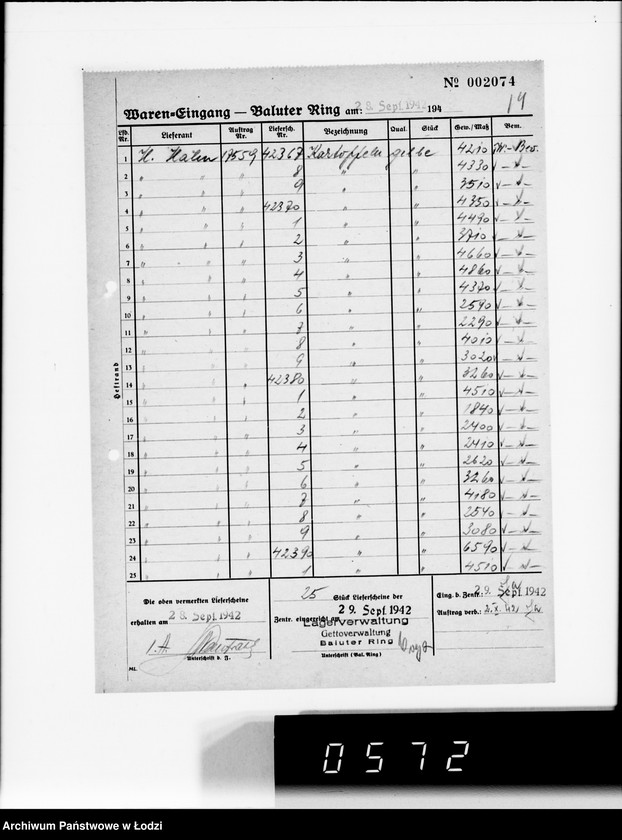 № 002074
Waren=Eingang — Baluter Ring am: 28. Sept. 1942 194
19
Lfd. Nr. Lieferant Auftrag Nr. Liefersch. Nr. Bezeichnung Qual. Stück Gew./Maß Bem.
1 H. Hahn 17559 42367 Kartoffeln gelbe 4210
2 " " " 8 " " 4330
3 " " " 9 " " 3510
4 " " " 42370 " " 4350
5 " " " 1 " " 4490
6 " " " 2 " " 3710
7 " " " 3 " " 4660
8 " " " 4 " " 4860
9 " " " 5 " " 4370
10 " " " 6 " " 2590
11 " " " 7 " " 2290
12 " " " 8 " " 4010
13 " " " 9 " " 3020
14 " " " 42380 " " 3260
15 " " " 1 " " 4510
16 " " " 2 " " 1840
17 " " " 3 " " 2400
18 " " " 4 " " 2410
19 " " " 5 " " 2620
20 " " " 6 " " 3260
21 " " " 7 " " 4180
22 " " " 8 " " 2540
23 " " " 9 " " 3080
24 " " " 42390 " " 6590
25 " " " 1 " " 4510
Heftrand
Die oben vermerkten Lieferscheine
erhalten am 28. Sept. 1942
I.A.
Unterschrift d. Z.
ML.
25 Stück Lieferscheine der
Zentr. eingereicht am 29. Sept. 1942
Lagerverwaltung
Gettoverwaltung
Baluter Ring
Unterschrift (Bal. Ring)
Eing. b. Zentr.: 29. Sept. 1942
Auftrag verb.:
0572
Archiwum Państwowe w Łodzi